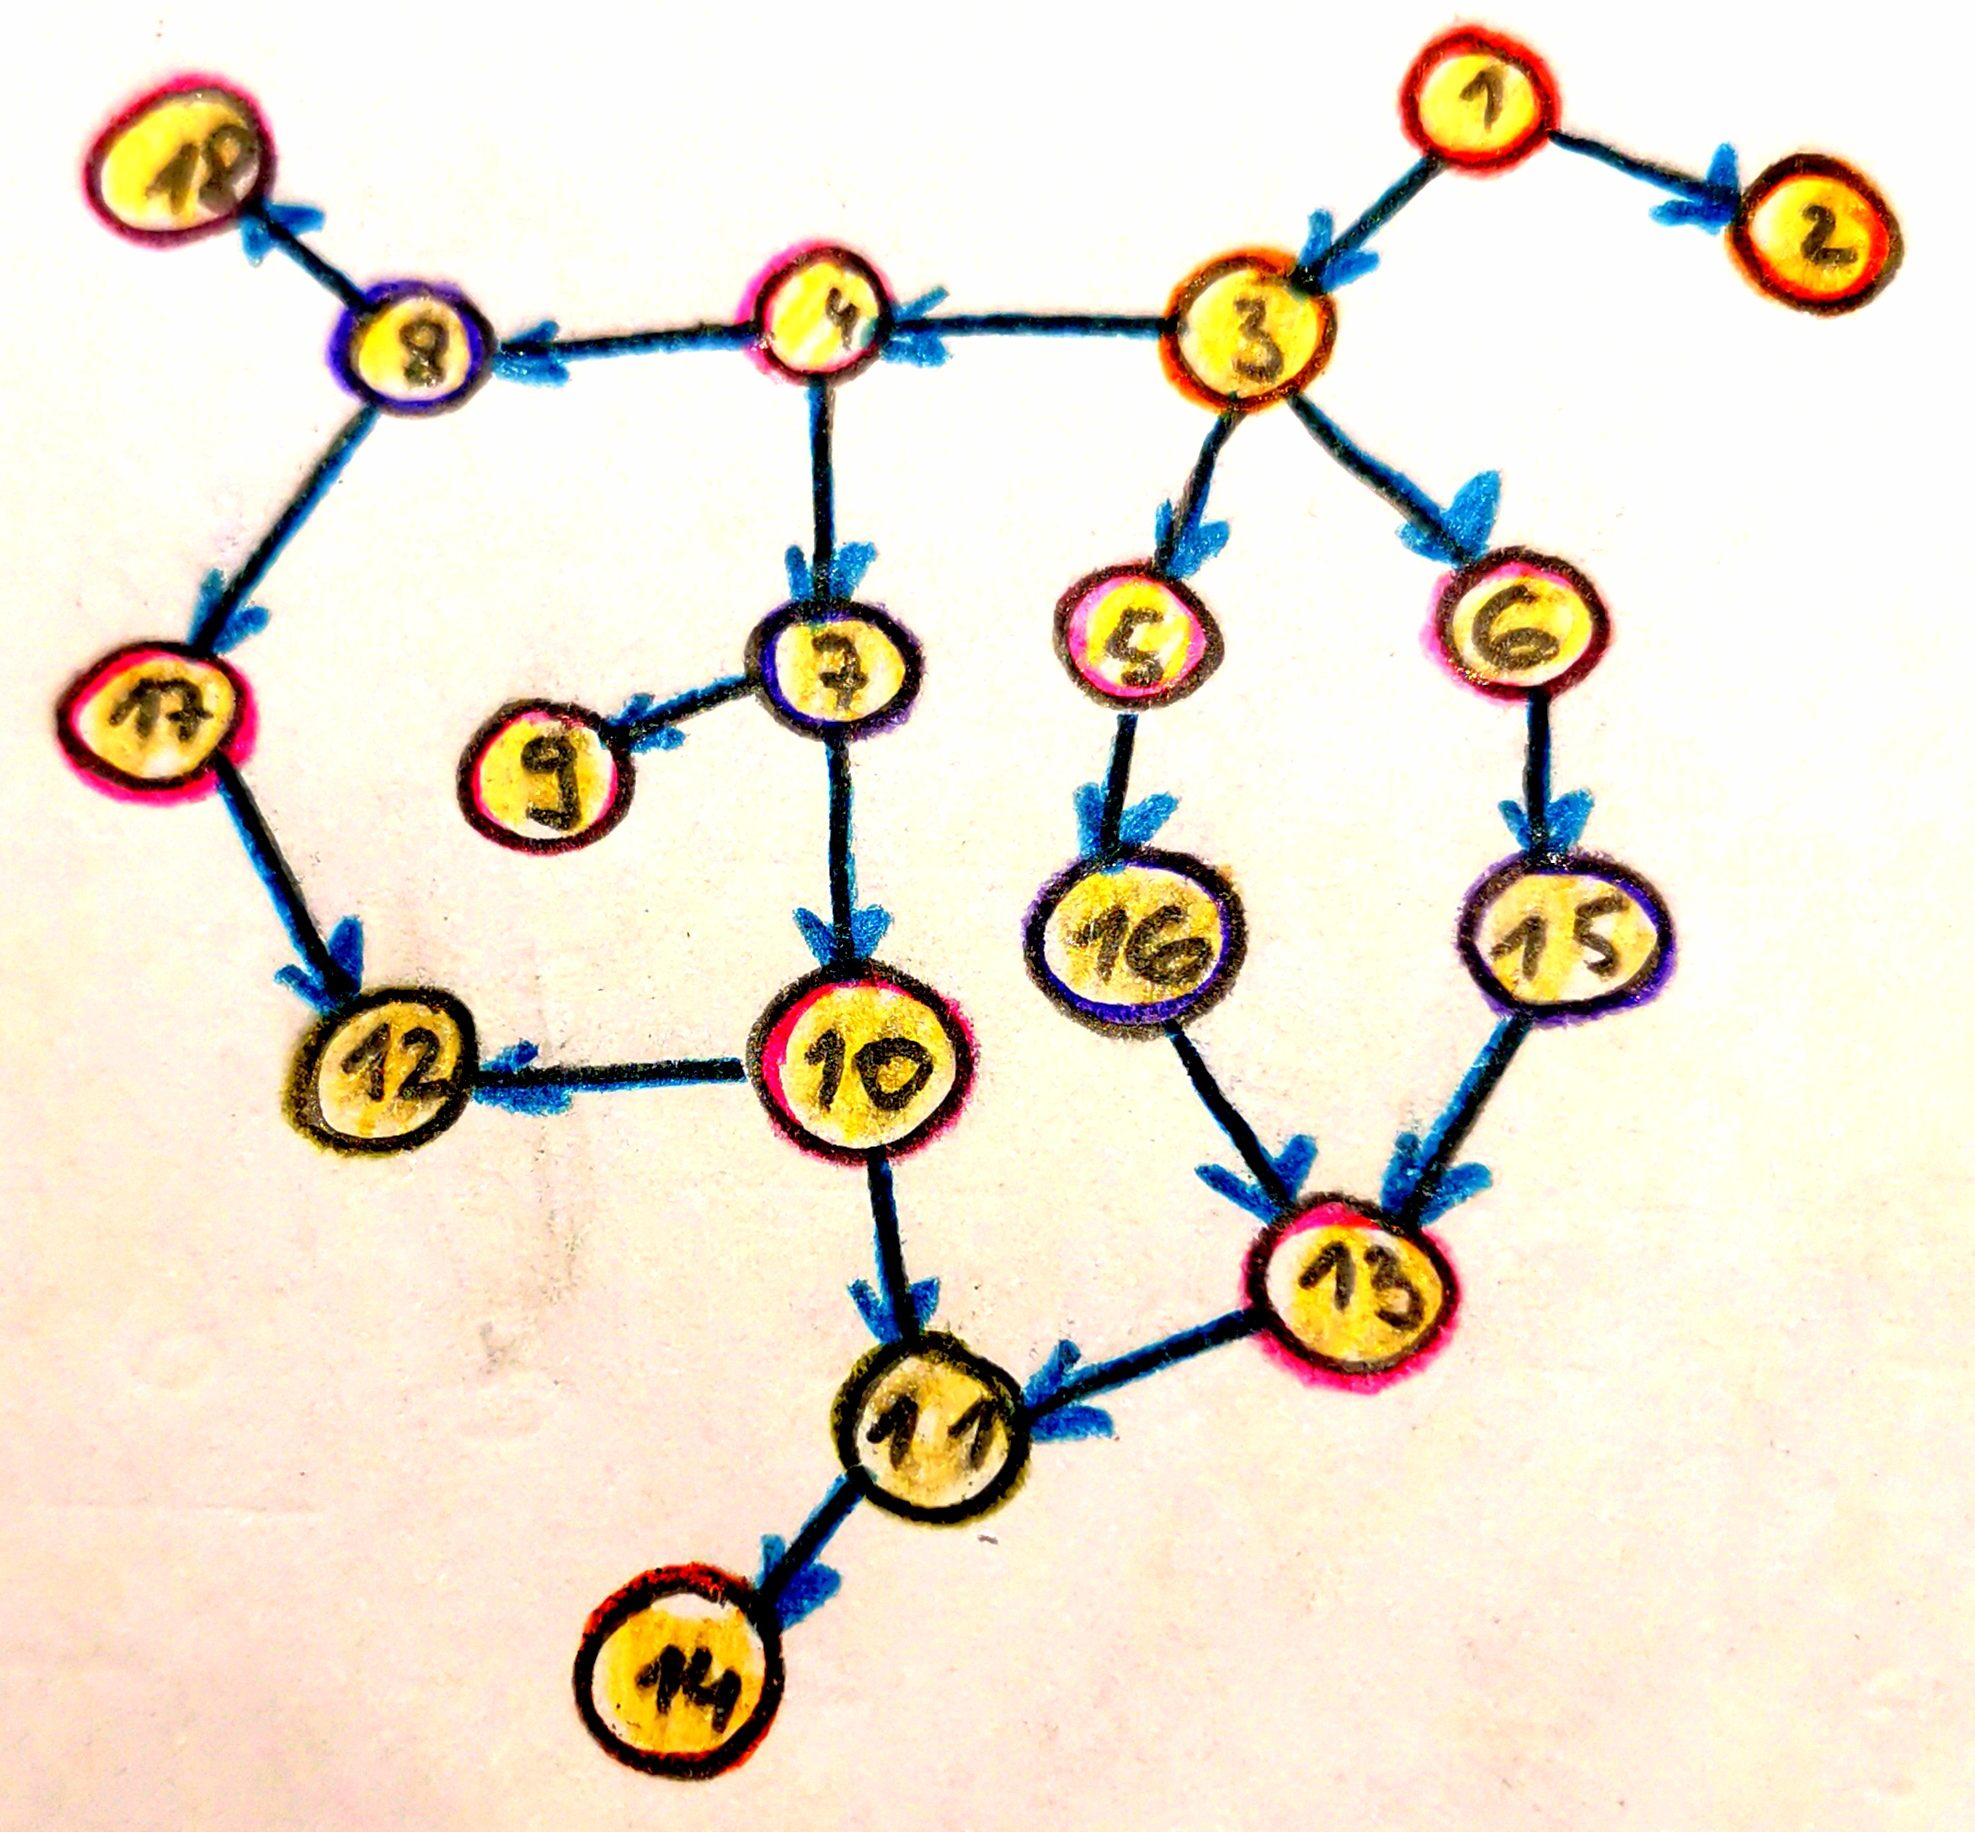 1
18
2
4
3
8
5
6
7
17
9
16
15
12
10
13
11
14